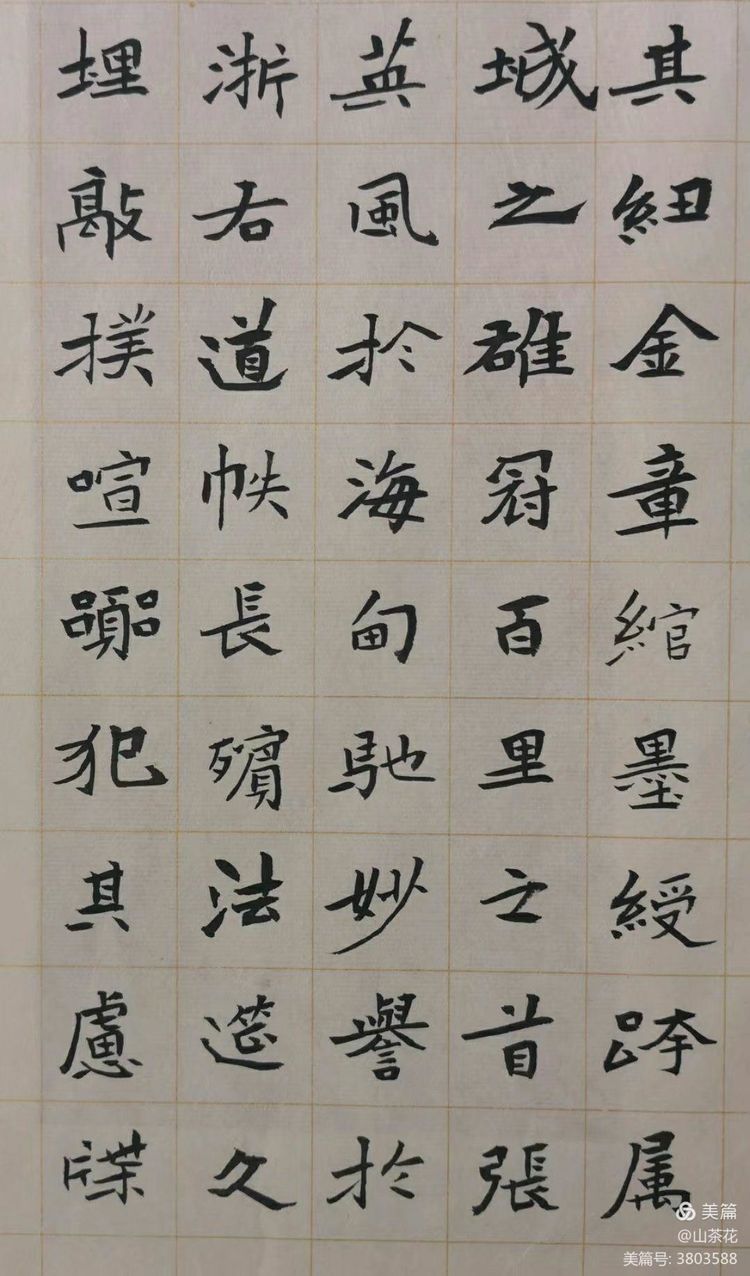 其紐金章綰墨綬跨属
城之雄冠百里之首張
英風於海甸馳妙譽於
浙右道帙長殯法筵久
埋敲撲喧囂犯其慮牒
美篇
@山茶花
美篇号: 3803588